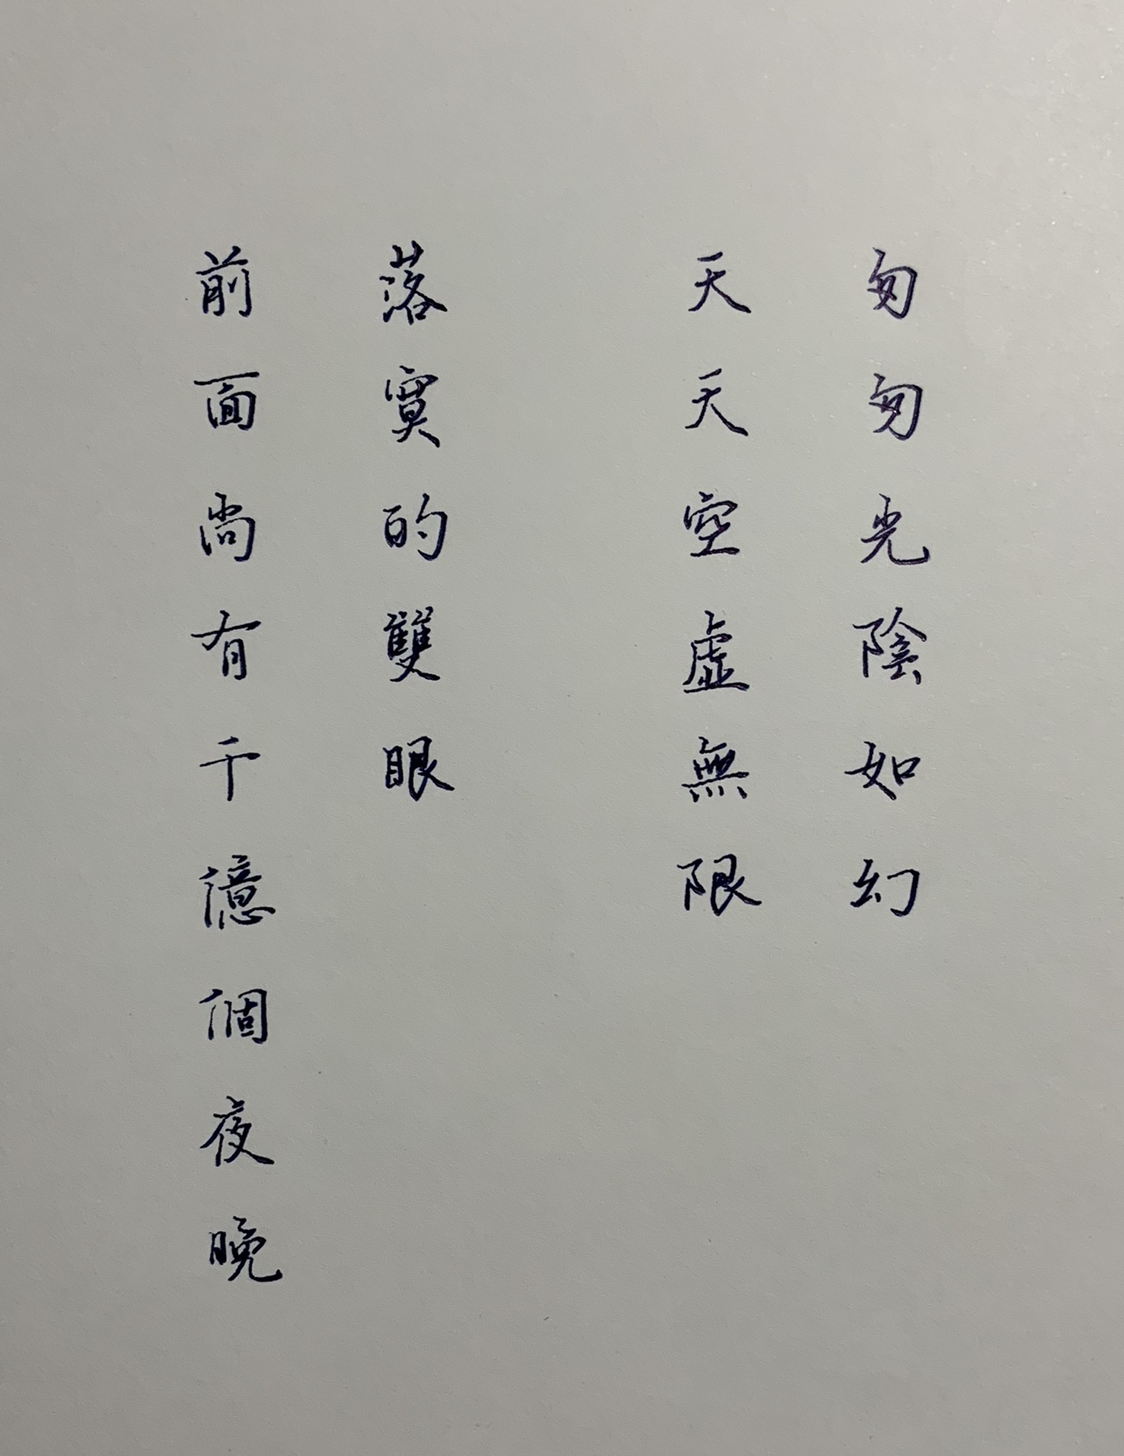 匆匆光陰如幻
天天空虛無限
落寞的雙眼
前面尚有千億個夜晚